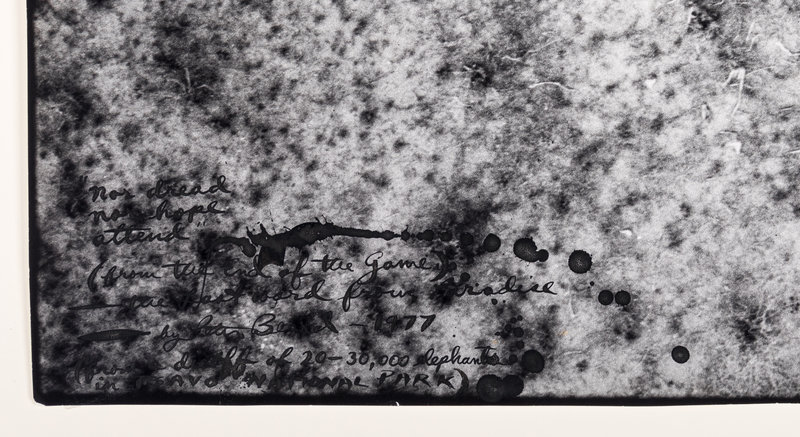 Nor dread
nor hope
attend
(from the end of the Game)
the last word from Paradise
by Peter Beard - 1977
of 20-30,000 elephants
in TSAVO NATIONAL PARK)